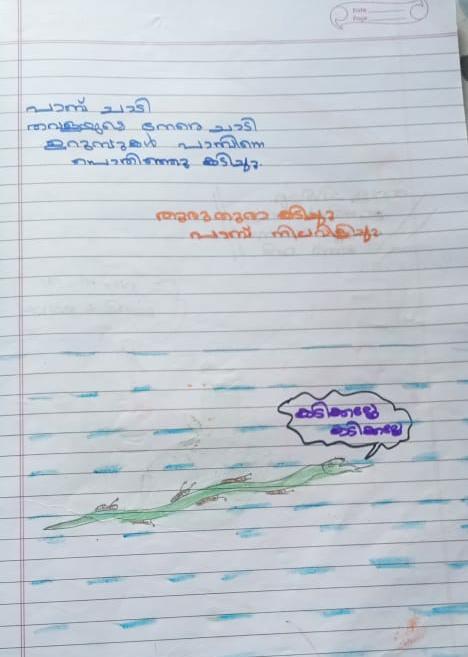 Date
Page
പാമ്പ് ചാടി
തവളയുടെ നേരെ ചാടി
ഉറുമ്പുകൾ പാമ്പിനെ
പൊതിഞ്ഞു കടിച്ചു.
തുരുതുരാ കടിച്ചു
പാമ്പ് നിലവിളിച്ചു
കടിക്കല്ലേ
കടിക്കല്ലേ